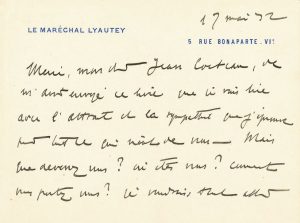 17 mai 32
LE MARÉCHAL LYAUTEY
5 RUE BONAPARTE. VIᵉ
Merci, mon cher Jean Cocteau, de
m'avoir envoyé ce livre que je vais lire
avec l'attrait de la sympathie que j'éprouve
pour tout ce qui vient de vous — Mais
que devenez vous ? où êtes vous ? comment
vous portez vous ? je voudrais, tout